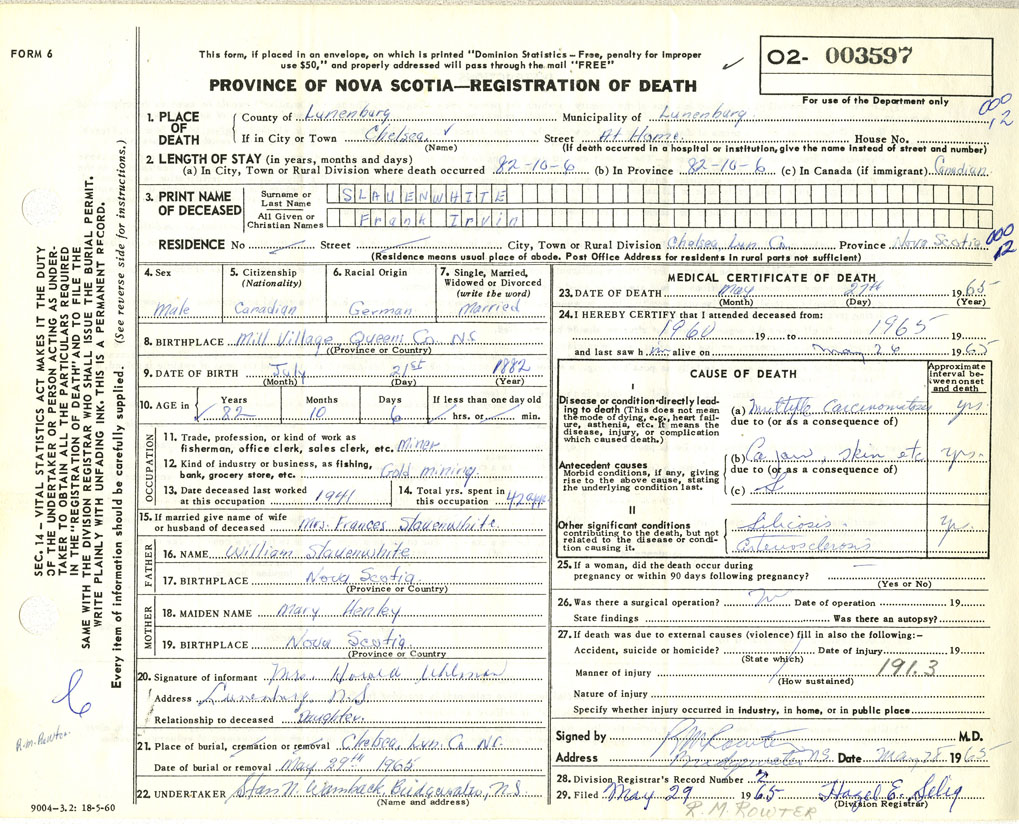 FORM 6
This form, if placed in an envelope, on which is printed "Dominion Statistics — Free, penalty for improper
use $50," and properly addressed will pass through the mail "FREE"
O2- 003597
For use of the Department only
PROVINCE OF NOVA SCOTIA—REGISTRATION OF DEATH
000
12
1. PLACE OF DEATH
County of Lunenburg Municipality of Lunenburg
If in City or Town Chelsea Street At Home House No.
(Name) (If death occurred in a hospital or institution, give the name instead of street and number)
2. LENGTH OF STAY (in years, months and days)
(a) In City, Town or Rural Division where death occurred 82-10-6 (b) In Province 82-10-6 (c) In Canada (if immigrant) Canadian
3. PRINT NAME OF DECEASED
Surname or Last Name SLAUENWHITE
All Given or Christian Names Frank Irvin
RESIDENCE No Street City, Town or Rural Division Chelsea, Lun. Co Province Nova Scotia
000
12
(Residence means usual place of abode. Post Office Address for residents in rural parts not sufficient)
4. Sex
Male
5. Citizenship (Nationality)
Canadian
6. Racial Origin
German
7. Single, Married, Widowed or Divorced (write the word)
Married
8. BIRTHPLACE Mill Village Queens Co N.S.
(Province or Country)
9. DATE OF BIRTH July 21st 1882
(Month) (Day) (Year)
10. AGE in Years Months Days If less than one day old
82 10 6 hrs. or min.
OCCUPATION
11. Trade, profession, or kind of work as
fisherman, office clerk, sales clerk, etc. Miner
12. Kind of industry or business, as fishing,
bank, grocery store, etc. Gold mining
13. Date deceased last worked at this occupation 1941
14. Total yrs. spent in this occupation 42
15. If married give name of wife
or husband of deceased Mrs. Frances Slauenwhite
FATHER
16. NAME William Slauenwhite
17. BIRTHPLACE Nova Scotia
(Province or Country)
MOTHER
18. MAIDEN NAME Mary Henley
19. BIRTHPLACE Nova Scotia
(Province or Country
20. Signature of informant Mrs. Harold Uhlman
Address Lunenburg N.S
Relationship to deceased Daughter
21. Place of burial, cremation or removal Chelsea, Lun. Co N.S.
Date of burial or removal May 29th 1965
22. UNDERTAKER Stan N. Wamback Bridgewater, N.S
(Name and address)
MEDICAL CERTIFICATE OF DEATH
23. DATE OF DEATH May 27th 1965
(Month) (Day) (Year)
24. I HEREBY CERTIFY that I attended deceased from:
1960 19 to 1965
and last saw him alive on May 26 1965
CAUSE OF DEATH
Approximate interval between onset and death
I
Disease or condition directly leading to death (This does not
mean the mode of dying, e.g., heart failure, asthenia, etc. It means the
disease, injury, or complication which caused death.)
(a) Multiple carcinomatosis yrs
due to (or as a consequence of)
Antecedent causes
Morbid conditions, if any, giving rise to the above cause, stating the underlying condition last.
(b) Ca jaw, skin etc yrs.
due to (or as a consequence of)
(c)
II
Other significant conditions
contributing to the death, but not related to the disease or condition causing it.
Silicosis yrs.
arteriosclerosis
25. If a woman, did the death occur during
pregnancy or within 90 days following pregnancy?
(Yes or No)
26. Was there a surgical operation? No Date of operation 19
State findings Was there an autopsy?
27. If death was due to external causes (violence) fill in also the following:—
Accident, suicide or homicide? Date of injury 19
(State which)
Manner of injury 191.3
(How sustained)
Nature of injury
Specify whether injury occurred in industry, in home, or in public place
Signed by R M Rowter M.D.
Address Bridgewater N.S. Date May 28 1965
28. Division Registrar's Record Number 2
29. Filed May 29 1965 Hazel E. Selig
(Division Registrar)
R. M. ROWTER
SEC. 14 – VITAL STATISTICS ACT MAKES IT THE DUTY
OF THE UNDERTAKER OR PERSON ACTING AS UNDER-
TAKER TO OBTAIN ALL THE PARTICULARS REQUIRED
IN THE "REGISTRATION OF DEATH" AND TO FILE THE
SAME WITH THE DIVISION REGISTRAR WHO SHALL ISSUE THE BURIAL PERMIT.
WRITE PLAINLY WITH UNFADING INK. THIS IS A PERMANENT RECORD.
Every item of information should be carefully supplied. (See reverse side for instructions.)
R.M. Rowter
9004-3.2: 18-5-60